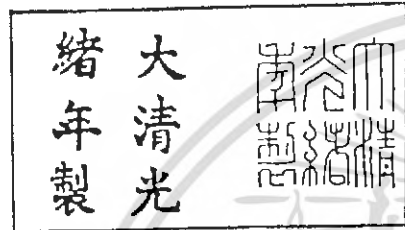 大清
光緒
年製
大清光
緒年製